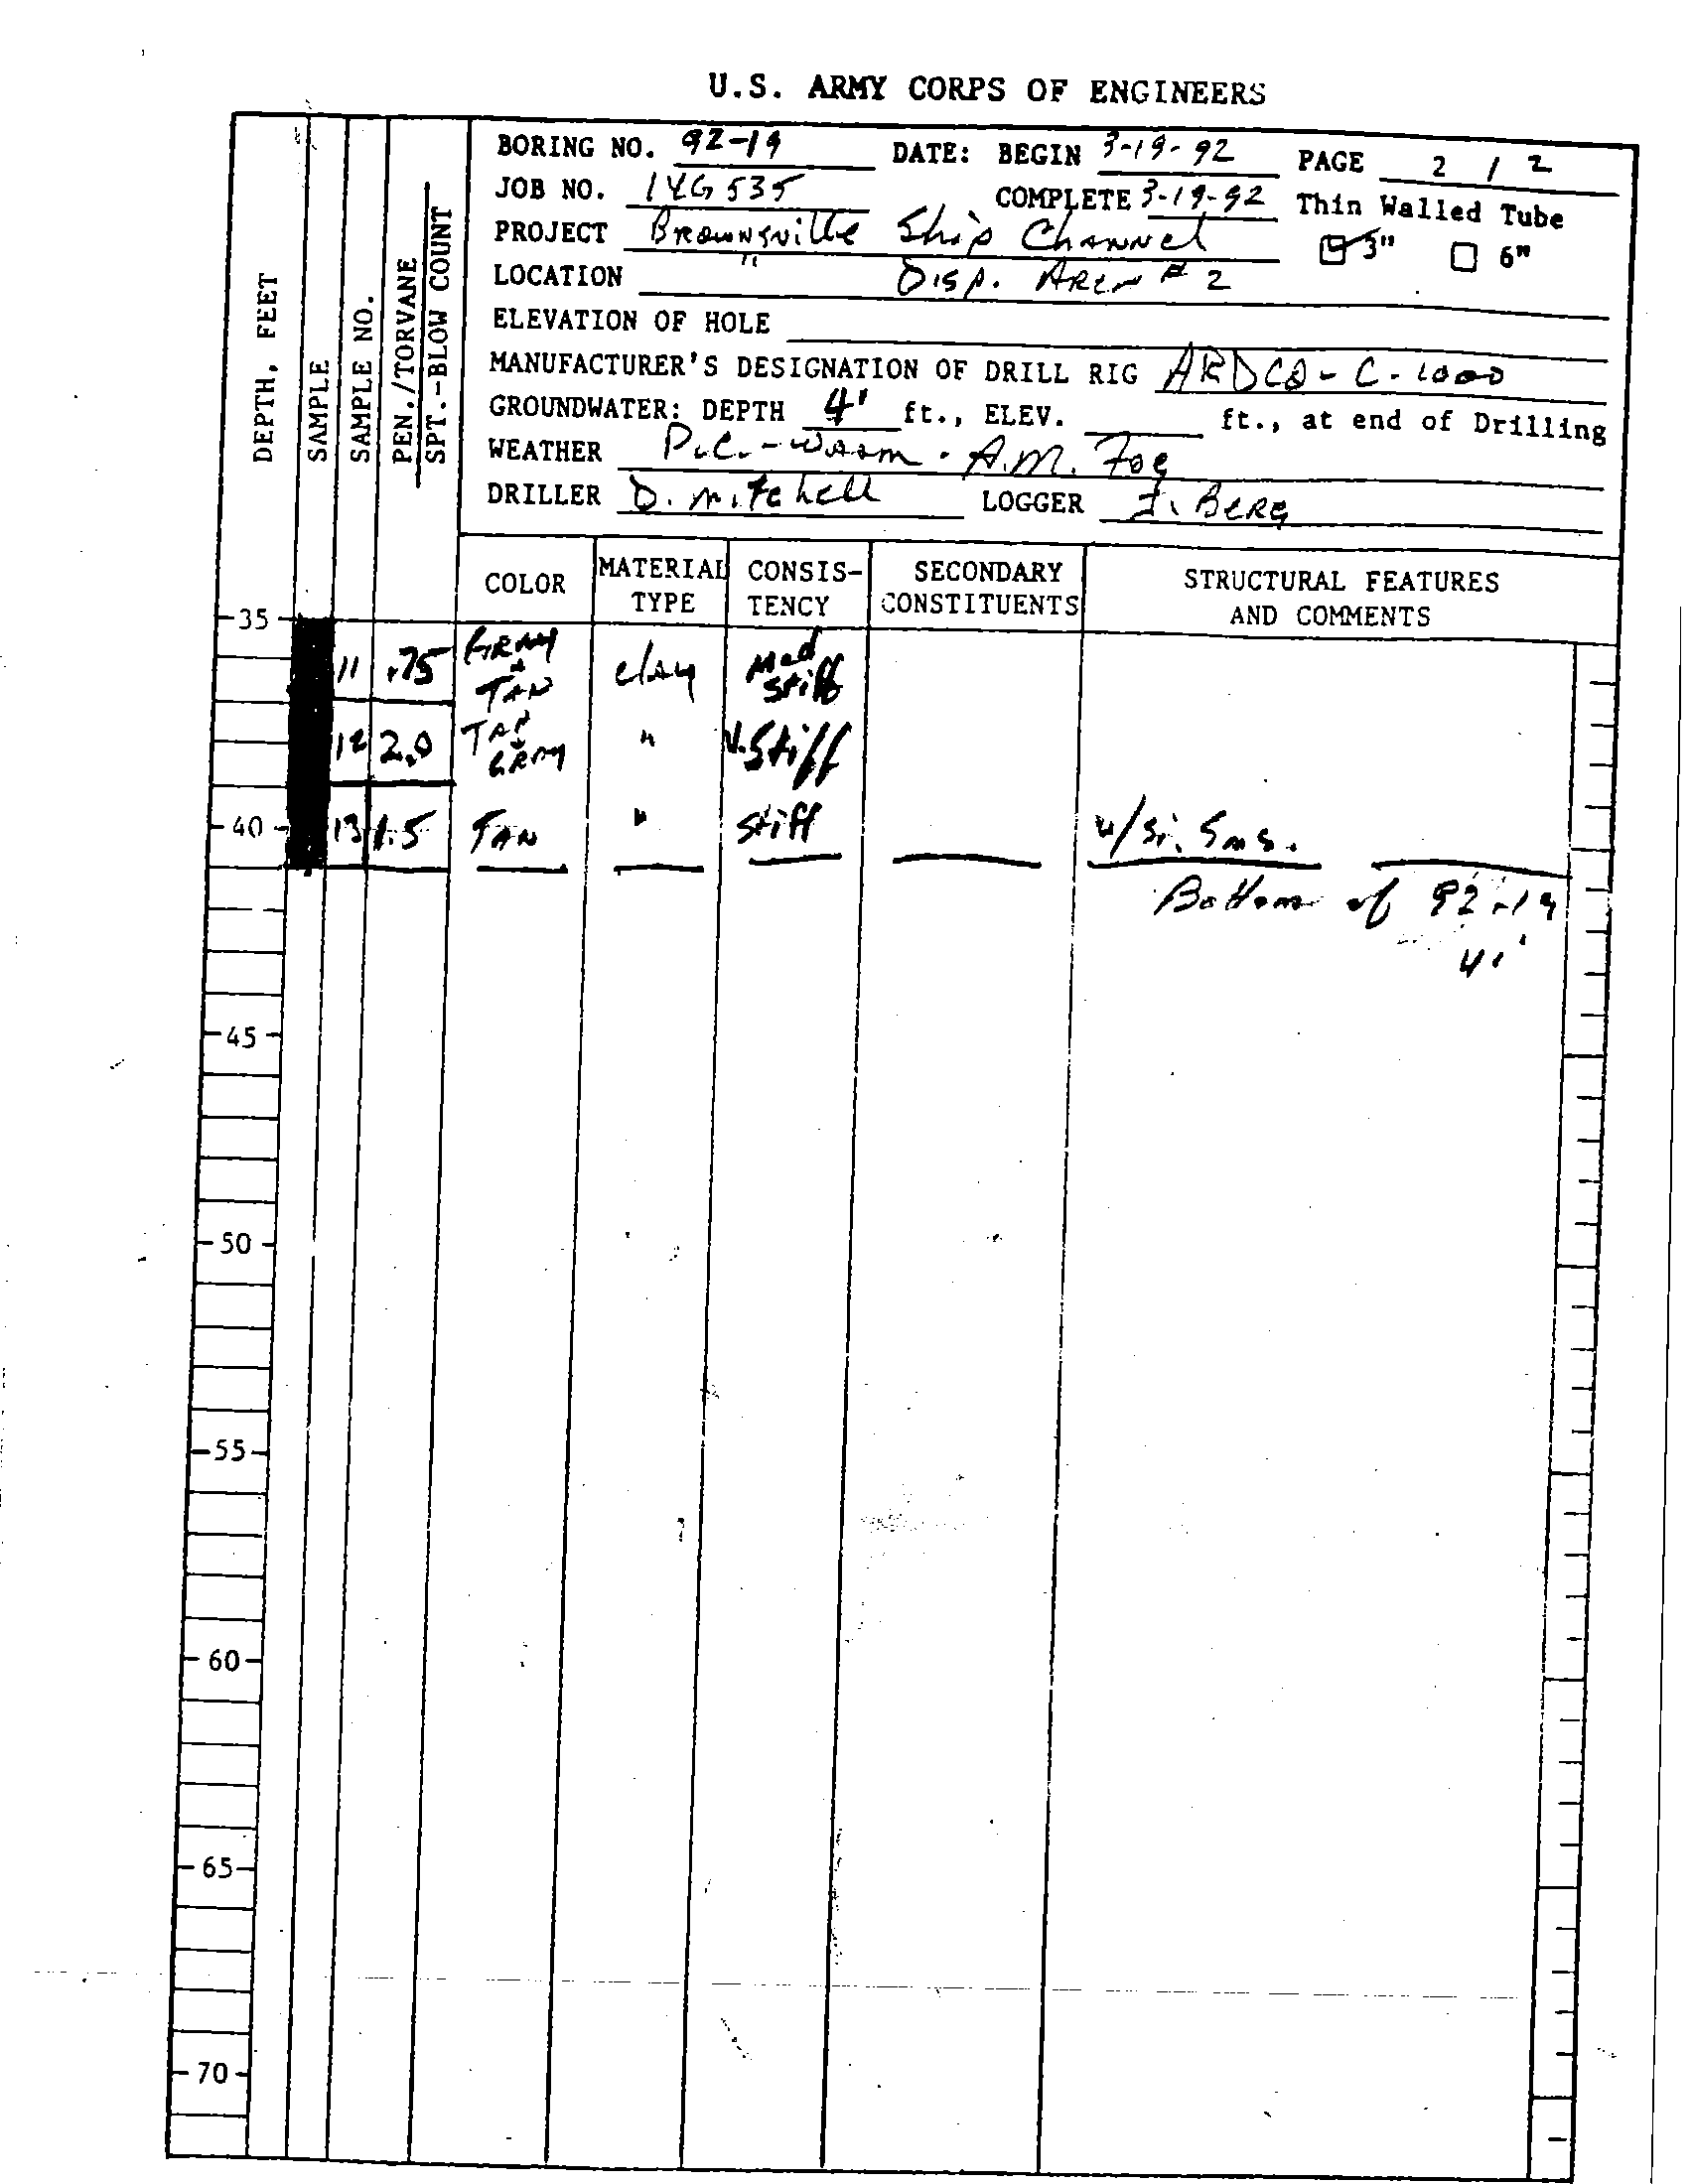 U.S. ARMY CORPS OF ENGINEERS
BORING NO. 92-19 DATE: BEGIN 3-19-92 PAGE 2 / 2
JOB NO. COMPLETE 3-19-92 Thin Walled Tube
PROJECT Brownsville Ship Channel 3" 6"
LOCATION " Disp. Area # 2
ELEVATION OF HOLE
MANUFACTURER'S DESIGNATION OF DRILL RIG ARDCO - C-1000
GROUNDWATER: DEPTH 4' ft., ELEV. ft., at end of Drilling
WEATHER P.C. - Warm - A.M. Fog
DRILLER D. Mitchell LOGGER BERG
DEPTH, FEET
SAMPLE
SAMPLE NO.
PEN./TORVANE
SPT.-BLOW COUNT
COLOR MATERIAL TYPE CONSIS-TENCY SECONDARY CONSTITUENTS STRUCTURAL FEATURES AND COMMENTS
35
11 .75 GRAY TAN clay Med stiff
12 2.0 TAN GRAY " V.Stiff
40 13 1.5 TAN " Stiff w/ Si. Sms.
Bottom of 92-19
41'
45
50
55
60
65
70